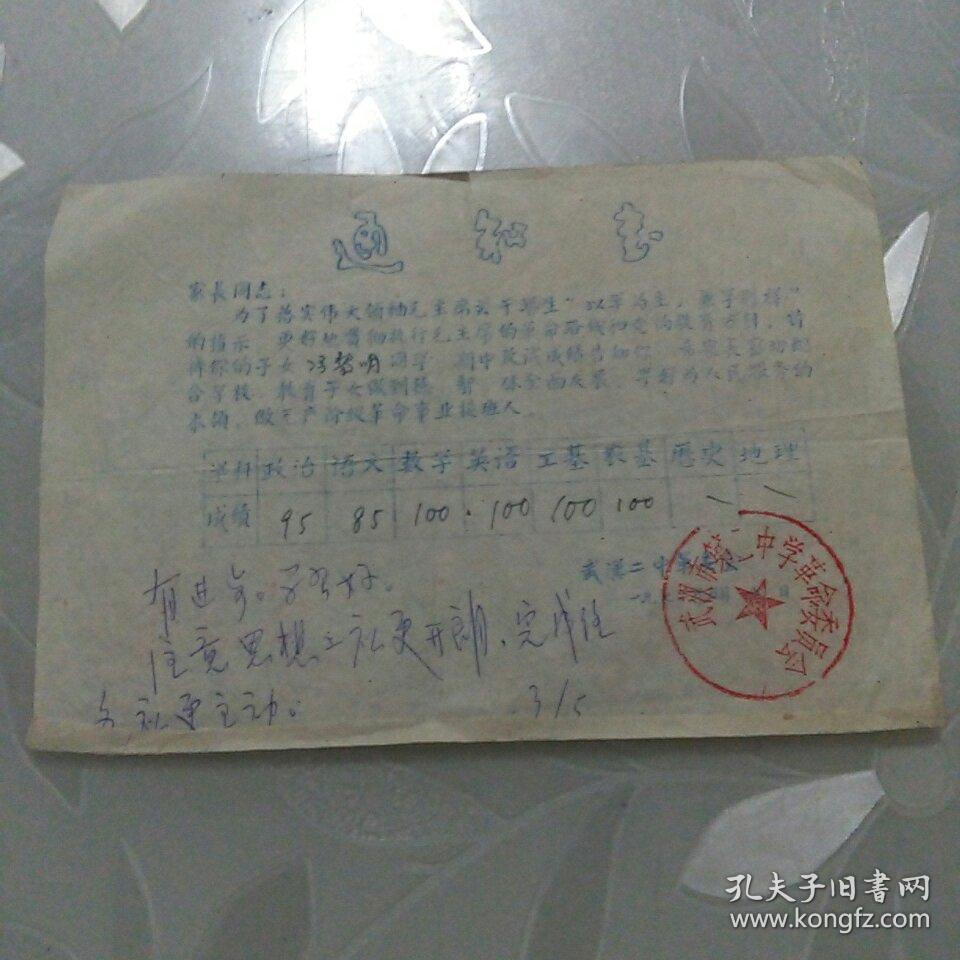 通知书
家长同志：
为了落实伟大领袖毛主席关于学生“以学为主，兼学别样”
的指示，更好地贯彻执行毛主席的革命路线和党的教育方针，特
将你的子女 同学 期中考试成绩告知你，希家长主动配
合学校，教育子女做到德、智、体全面发展，学好为人民服务的
本领，做无产阶级革命事业接班人。
学科 政治 语文 数学 英语 工基 农基 历史 地理
成绩 95 85 100 100 100 100 \ \
武汉二中
武汉市第二中学革命委员会
有进步。学习好。
注意思想上礼更开朗，完成任
务礼更主动。
3/5
孔夫子旧书网
www.kongfz.com